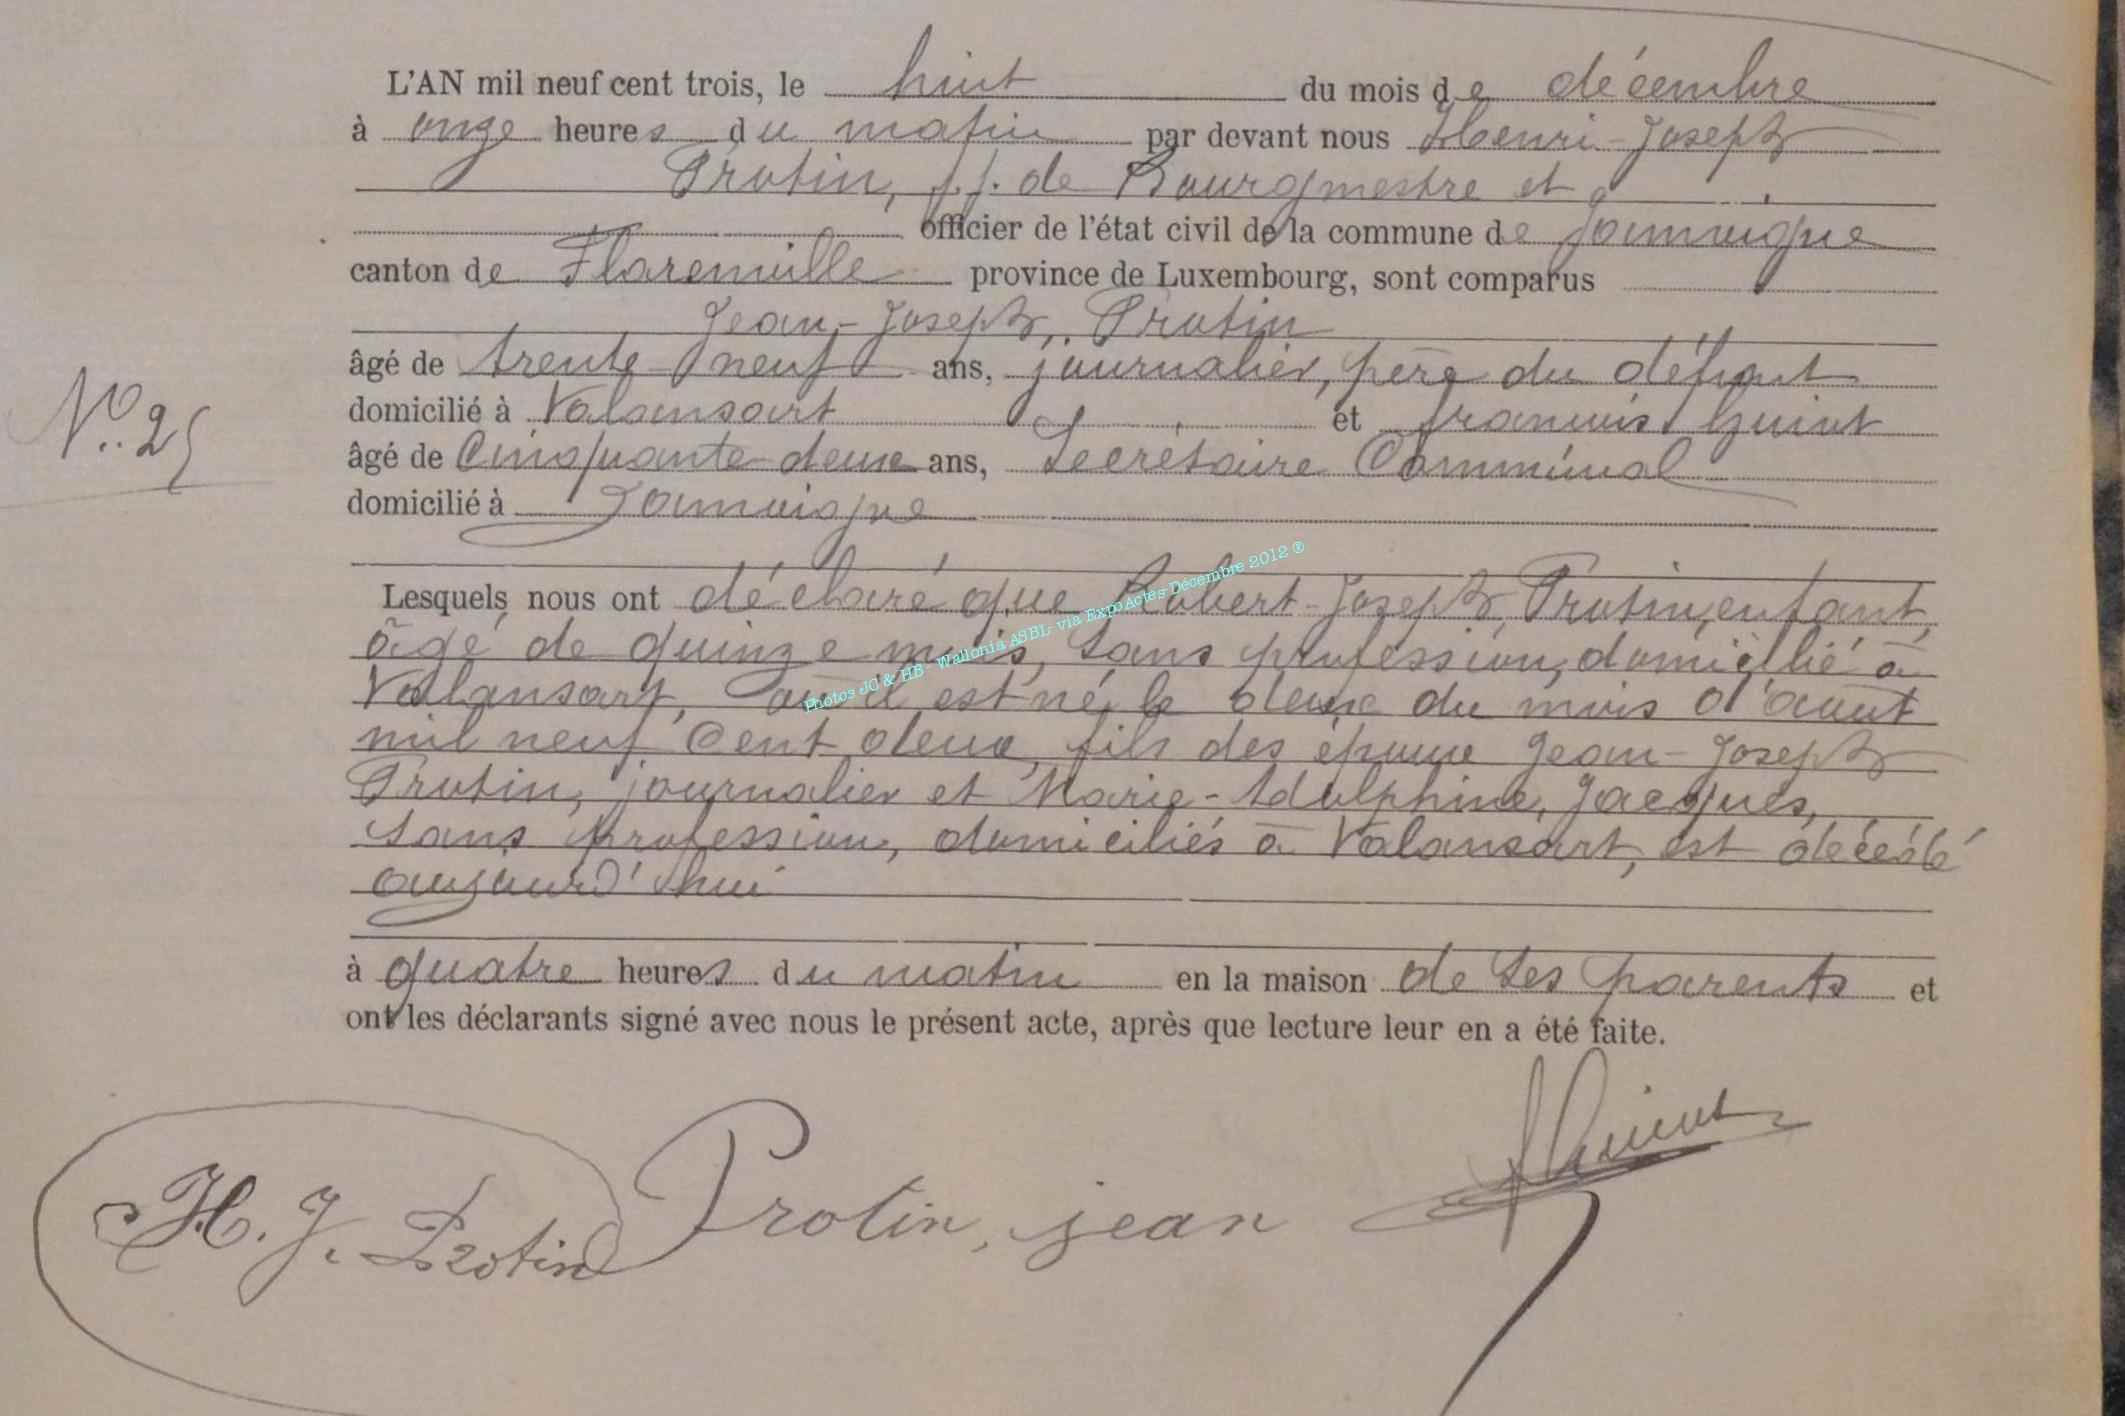 L'AN mil neuf cent trois, le huit du mois de décembre
à onze heures du matin par devant nous Henri-Joseph
Protin, f.f. de Bourgmestre et
officier de l'état civil de la commune de Jamoigne
canton de Florenville province de Luxembourg, sont comparus
Jean-Joseph, Protin
âgé de trente neuf ans, journalier, père du défunt
domicilié à Valansart et françois Guiot
âgé de Cinquante-deux ans, Secrétaire Communal
domicilié à Jamoigne
N° 25
Lesquels nous ont déclaré que Robert-Joseph, Protin, enfant,
âgé de quinze mois, sans profession, domicilié à
Valansart, où il est né le deux du mois d'août
mil neuf Cent deux, fils des époux Jean-Joseph
Protin, journalier et Marie-Adolphine, Jacques,
sans profession, domiciliés à Valansart, est décédé
aujourd'hui
à quatre heures du matin en la maison de ses parents et
ont les déclarants signé avec nous le présent acte, après que lecture leur en a été faite.
H. J. Protin Protin, jean
Photos JC & HB - Wallonia ASBL- via ExpoActes Décembre 2012 ®